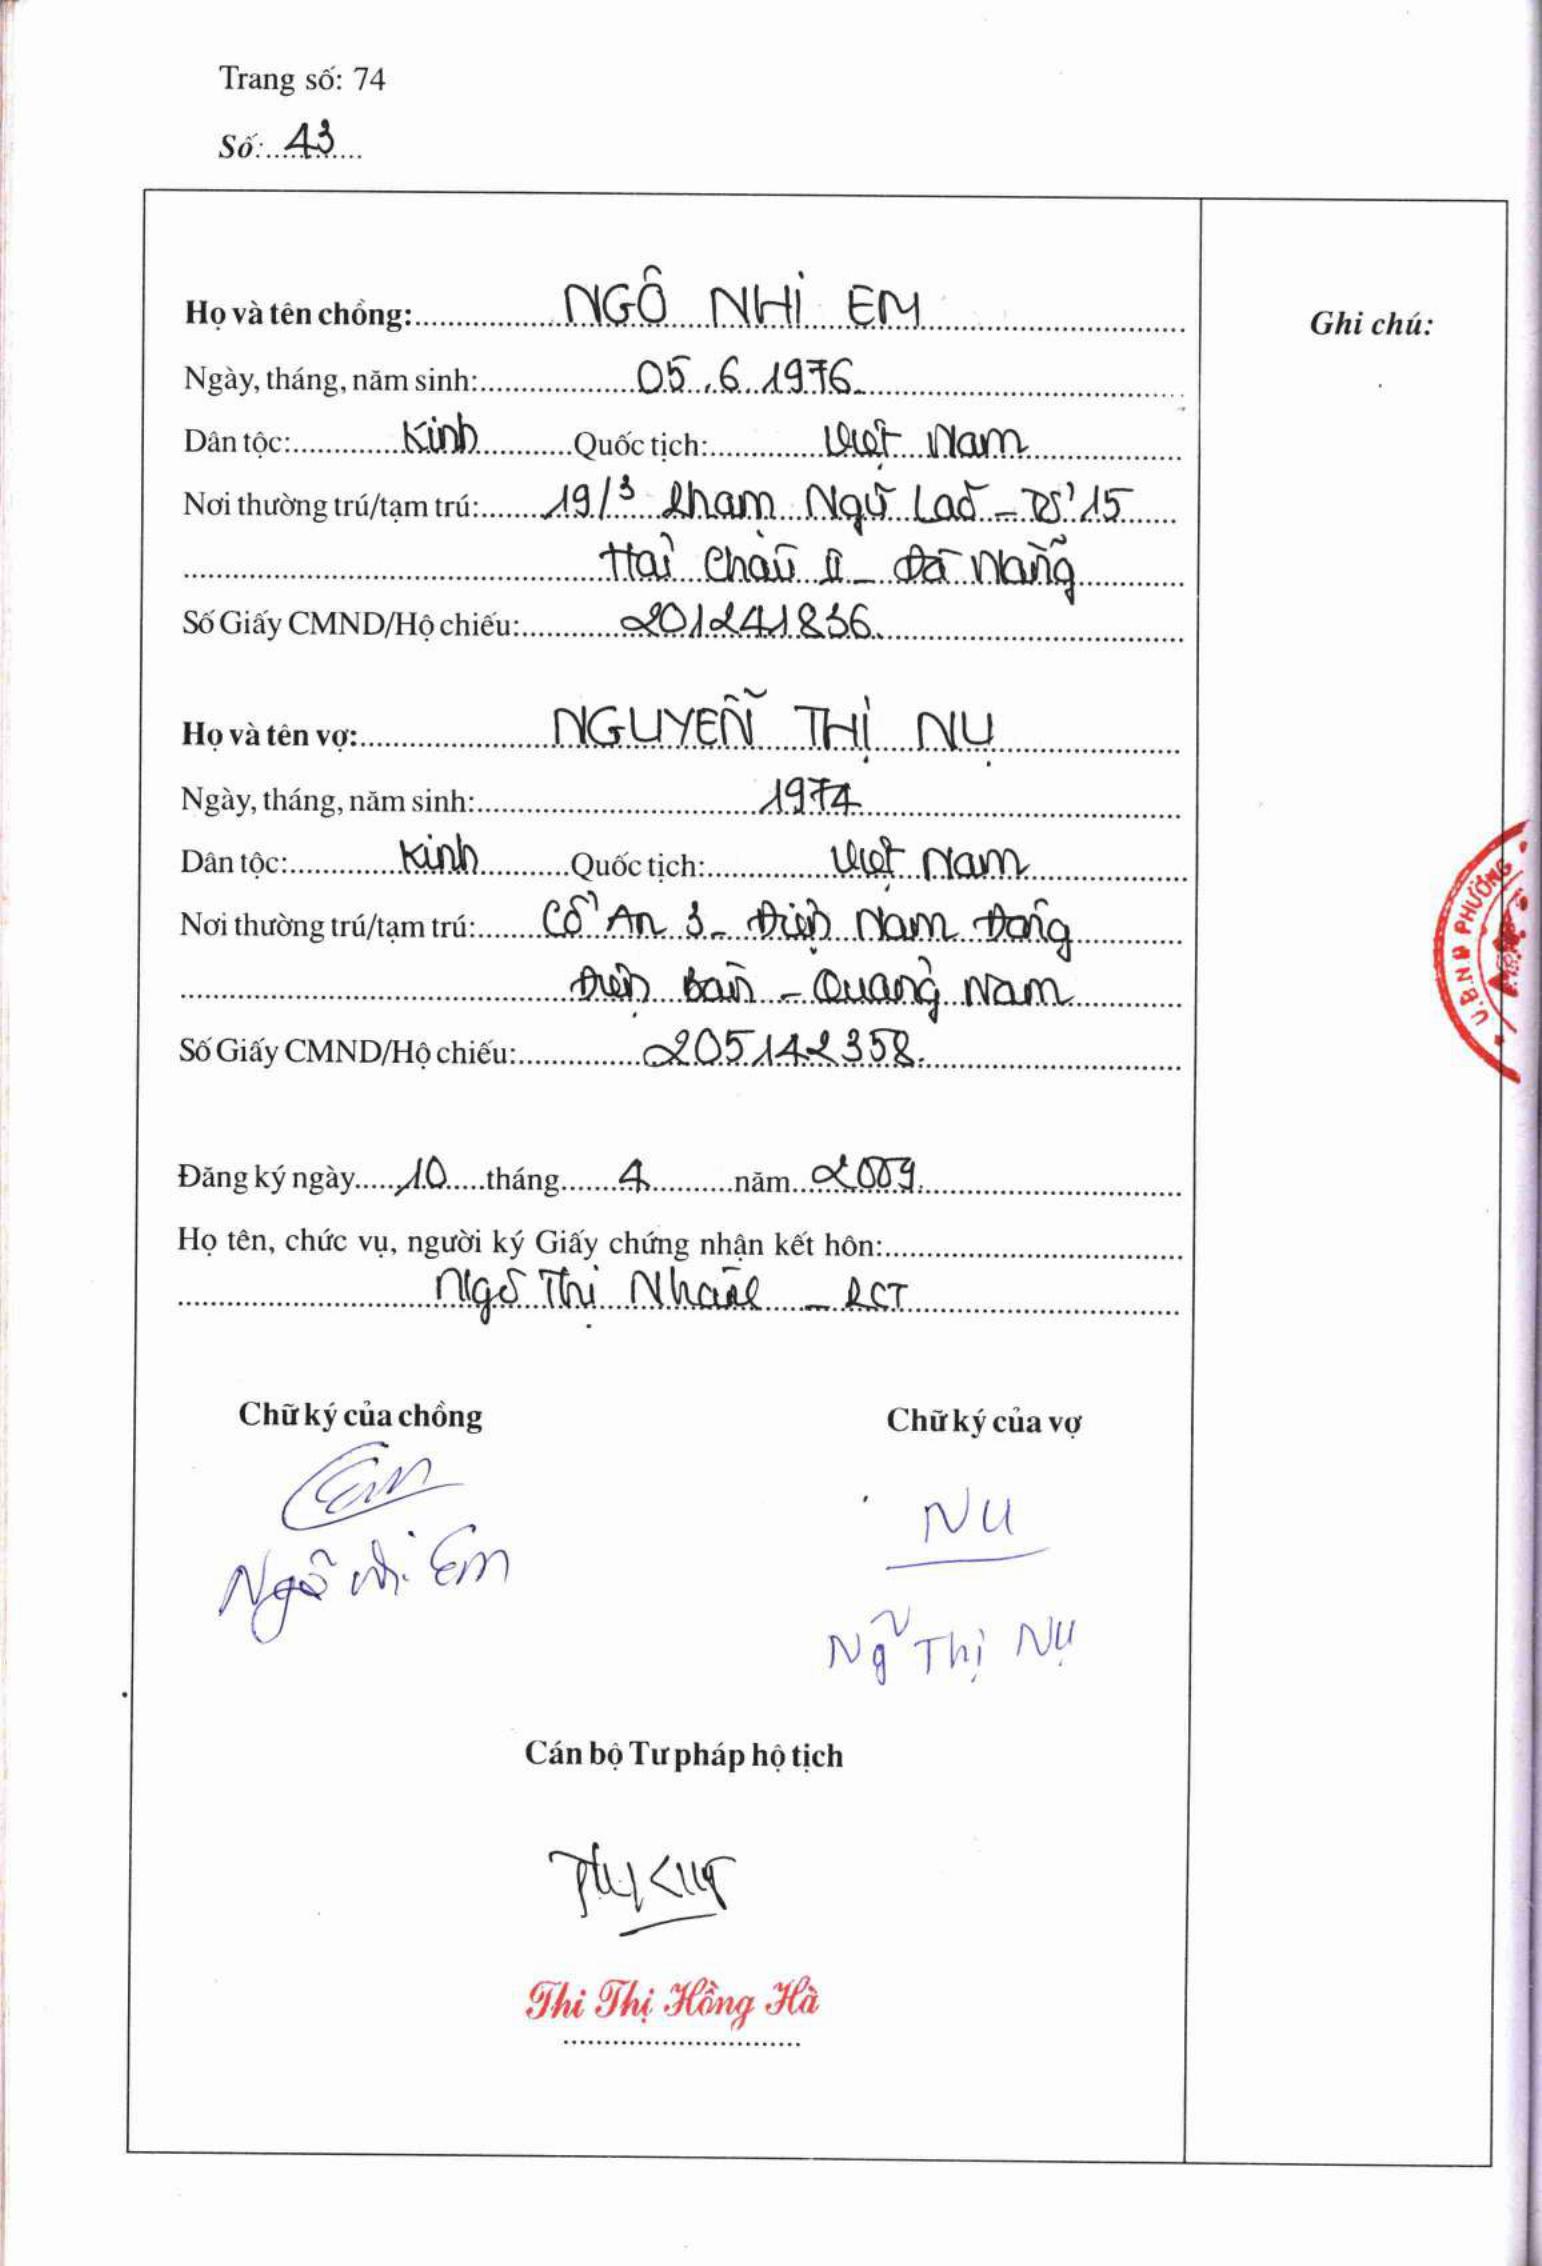 Trang số: 74
Số: 43
Họ và tên chồng: NGÔ NHỊ EM
Ghi chú:
Ngày, tháng, năm sinh: 05.6.1976
Dân tộc: Kinh Quốc tịch: Việt Nam
Nơi thường trú/tạm trú: 19/3 Phạm Ngũ Lão - Tổ 15
Hải Châu II - Đà Nẵng
Số Giấy CMND/Hộ chiếu: 201241836
Họ và tên vợ: NGUYỄN THỊ NỤ
Ngày, tháng, năm sinh: 1974
Dân tộc: Kinh Quốc tịch: Việt Nam
Nơi thường trú/tạm trú: Cổ An 3 - Điện Nam Đông
Điện Bàn - Quảng Nam
Số Giấy CMND/Hộ chiếu: 205142358
U.B.N.D PHƯỜNG
Đăng ký ngày 10 tháng 4 năm 2009
Họ tên, chức vụ, người ký Giấy chứng nhận kết hôn:
Ngô Thị Nhất - PCT
Chữ ký của chồng
Chữ ký của vợ
Em
Nu
Ngô Nhị Em
Ng~ Thị Nụ
Cán bộ Tư pháp hộ tịch
Thi Thị Hồng Hà